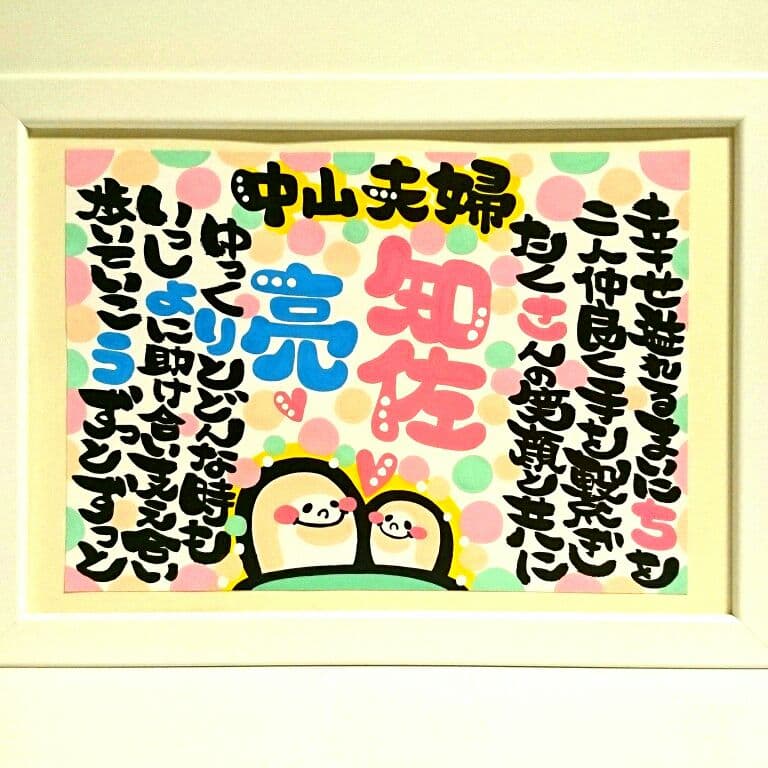 中山夫婦
知佐
亮
幸せ溢れるまにちを
二人仲良く手を繋ぎ
たくさんの笑顔と共に
ゆっくりとどんな時も
いっしょに助け合い支え合い
歩いていこうずっとずっと